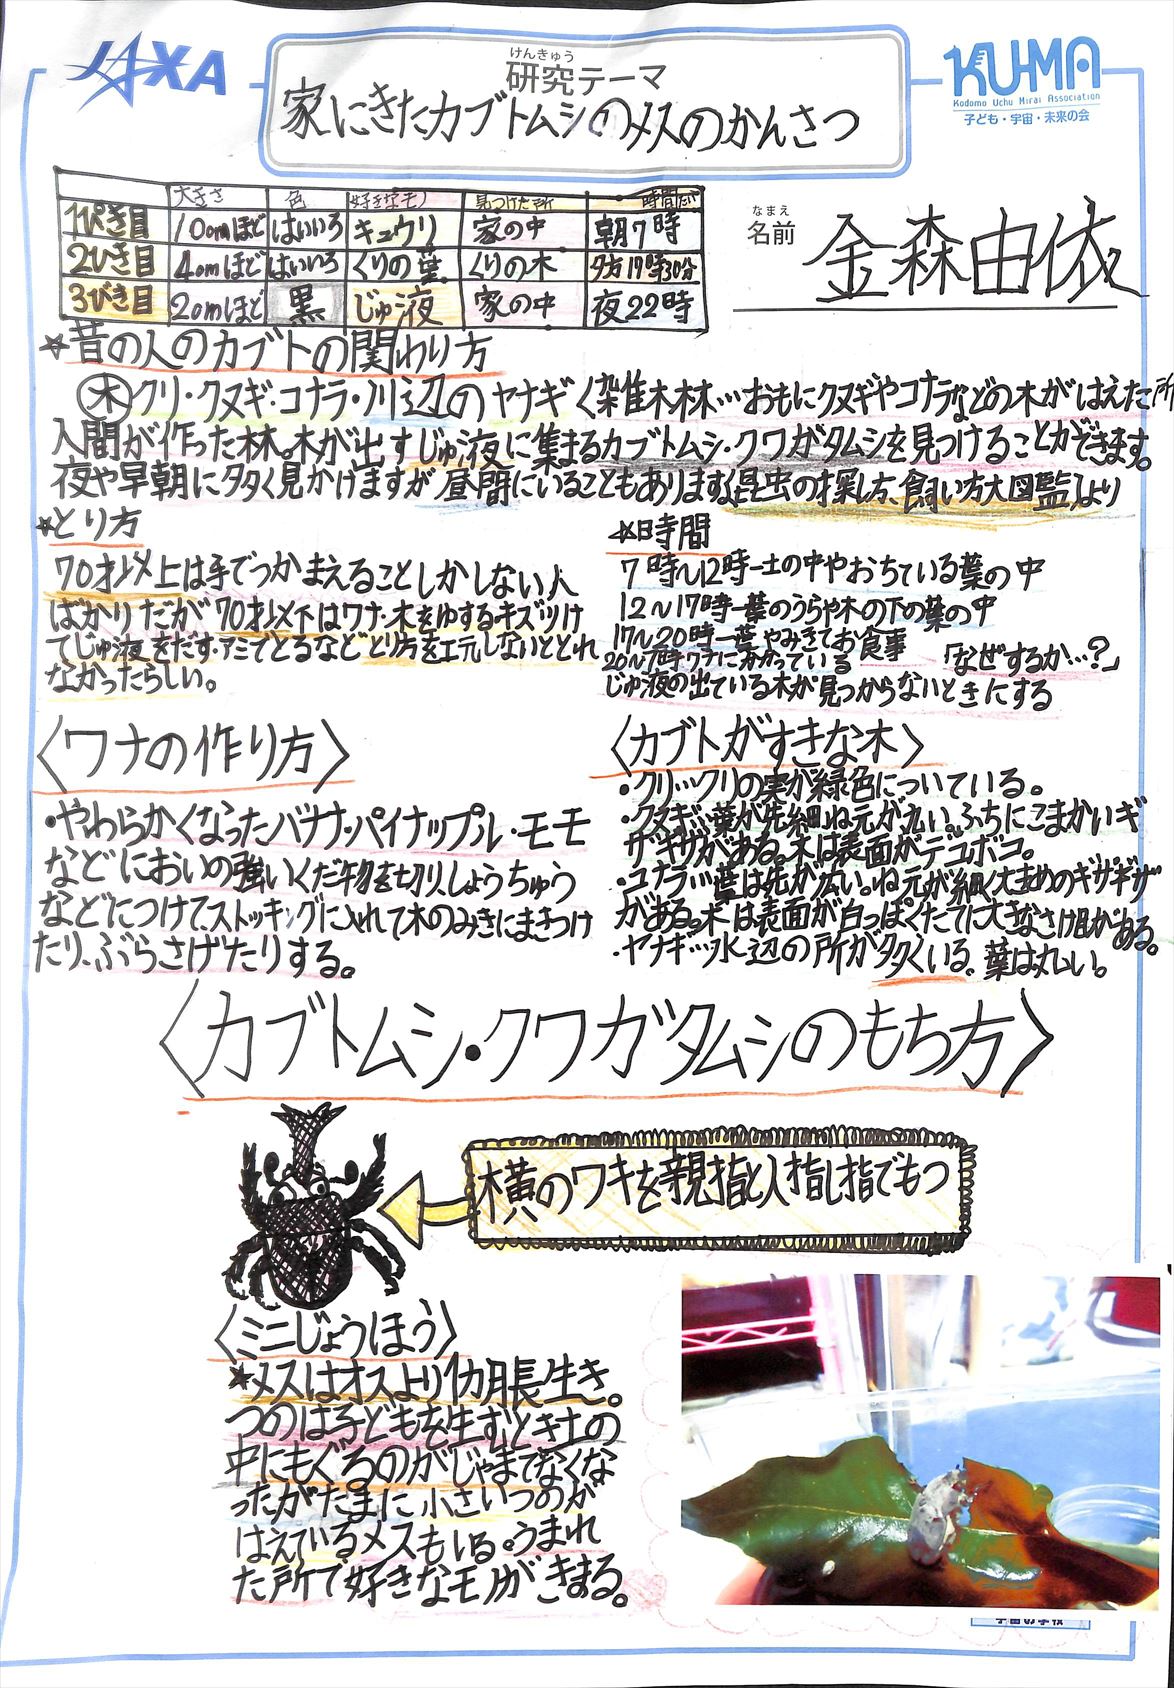 JAXA
けんきゅう
研究テーマ
家にきたカブトムシのメスのかんさつ
KU-MA
Kodomo Uchu Mirai Association
子ども・宇宙・未来の会
なまえ
名前
金森由依
大きさ 色 好きなモノ 見つけた所 時間たい
1ぴき目 10cmほど はいいろ キュウリ 家の中 朝7時
2ひき目 4cmほど はいいろ くりの葉 くりの木 夕方17時30分
3びき目 2cmほど 黒 じゅ液 家の中 夜22時
☆昔の人のカブトの関わり方
木 クリ・クヌギ・コナラ・川辺のヤナギ〈雑木林…おもにクヌギやコナラなどの木がはえた所
人間が作った林。木が出すじゅ液に集まるカブトムシ・クワガタムシを見つけることができます。
夜や早朝に多く見かけますが昼間にいることもあります〈昆虫の探し方、飼い方大図鑑〉より
☆とり方
70才以上は手でつかまえることしかしない人
ばかりだが70才以下はワナ・木をゆするキズつけ
てじゅ液をだす・アミでとるなどとり方を工元しないととれ
なかったらしい。
☆時間
7時〜12時ー土の中やおちている葉の中
12〜17時ー葉のうらや木の下の葉の中
17〜20時ー葉やみきでお食事
20〜7時ワナにかかっている 「なぜするか…?」
じゅ液の出ている木が見つからないときにする
〈ワナの作り方〉
・やわらかくなったバナナ・パイナップル・モモ
などにおいの強いくだ物を切り、しょうちゅう
などにつけて、ストッキングに入れて木のみきにまきつけ
たり、ぶらさげたりする。
〈カブトがすきな木〉
・クリ…クリの実が緑色についている。
・クヌギ…葉が先細ね元が丸い。ふちにこまかいギ
ザギザがある。木は表面がデコボコ。
・コナラ…葉は先が広い。ね元が細く大きめのギザギザ
がある。木は表面が白っぽくたてに大きなさけ目がある。
・ヤナギ…水辺の所が多くいる。葉は丸い。
〈カブトムシ・クワガタムシのもち方〉
横のワキを親指と人指し指でもつ
〈ミニじょうほう〉
☆メスはオスより1カ月長生き。
つのは子どもを生むとき土の
中にもぐるのがじゃまでなくな
ったがたまに小さいつのが
はえているメスもいる。うまれ
た所で好きなモノがきまる。
宇宙の学校